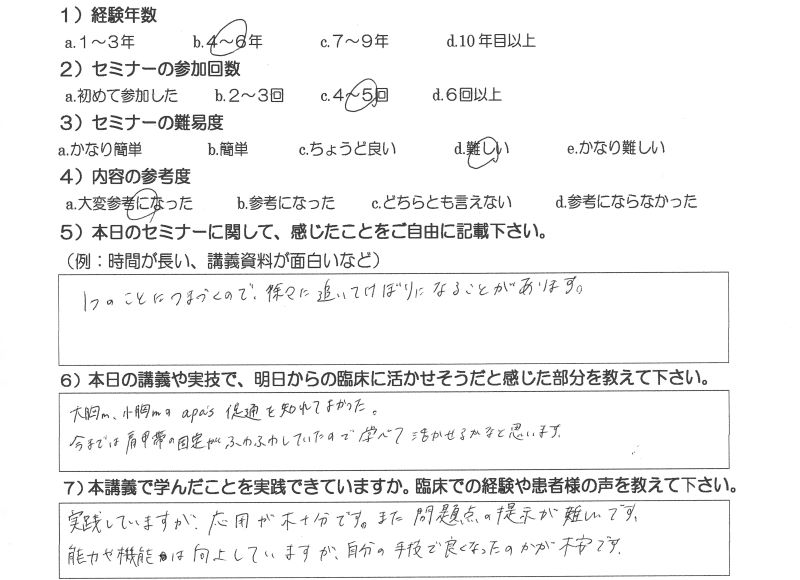 1）経験年数
a.1～3年 b.4～6年 c.7～9年 d.10年目以上
2）セミナーの参加回数
a.初めて参加した b.2～3回 c.4～5回 d.6回以上
3）セミナーの難易度
a.かなり簡単 b.簡単 c.ちょうど良い d.難しい e.かなり難しい
4）内容の参考度
a.大変参考になった b.参考になった c.どちらとも言えない d.参考にならなかった
5）本日のセミナーに関して、感じたことをご自由に記載下さい。
（例：時間が長い、講義資料が面白いなど）
1つのことにつまづくので、徐々に追いてけぼりになることがあります。
6）本日の講義や実技で、明日からの臨床に活かせそうだと感じた部分を教えて下さい。
大胸m、小胸mのapa's 促通を知れてよかった。
今までは肩甲帯の固定がふわふわしていたので学べて活かせるかなと思います。
7）本講義で学んだことを実践できていますか。臨床での経験や患者様の声を教えて下さい。
実践していますが、応用が不十分です。また問題点の提示が難しいです。
能力や機能は向上していますが、自分の手技で良くなったのかが不安です。